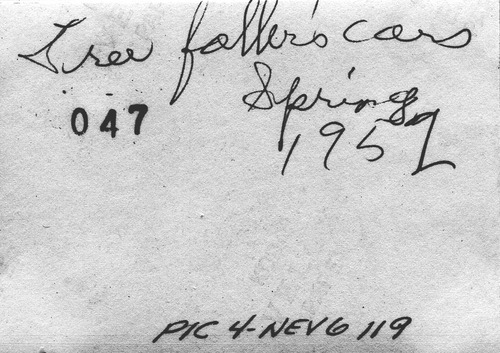 Tree faller's cars
Spring
047
1957
PIC 4-NEV6 119